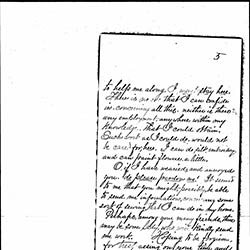 5
to help me along. I must stay here.
There is no one that I can confide
in concerning all this. neither is there
any employment, anywhere within my
knowledge, that I could obtain,
Such work as I could do. would not
be cared for, here. I can do, silk embroidery
and can paint flowers a little.
O, if I have wearied, and annoyed
you. do please pardon me! It
to me that you might, possibly be able
to send me information, concerning some
sort of sewing that I can do in my home.
Perhaps, among your many friends, there
may be some, who will kindly send
me work. Hoping to be forgiven
for, asking your time, and